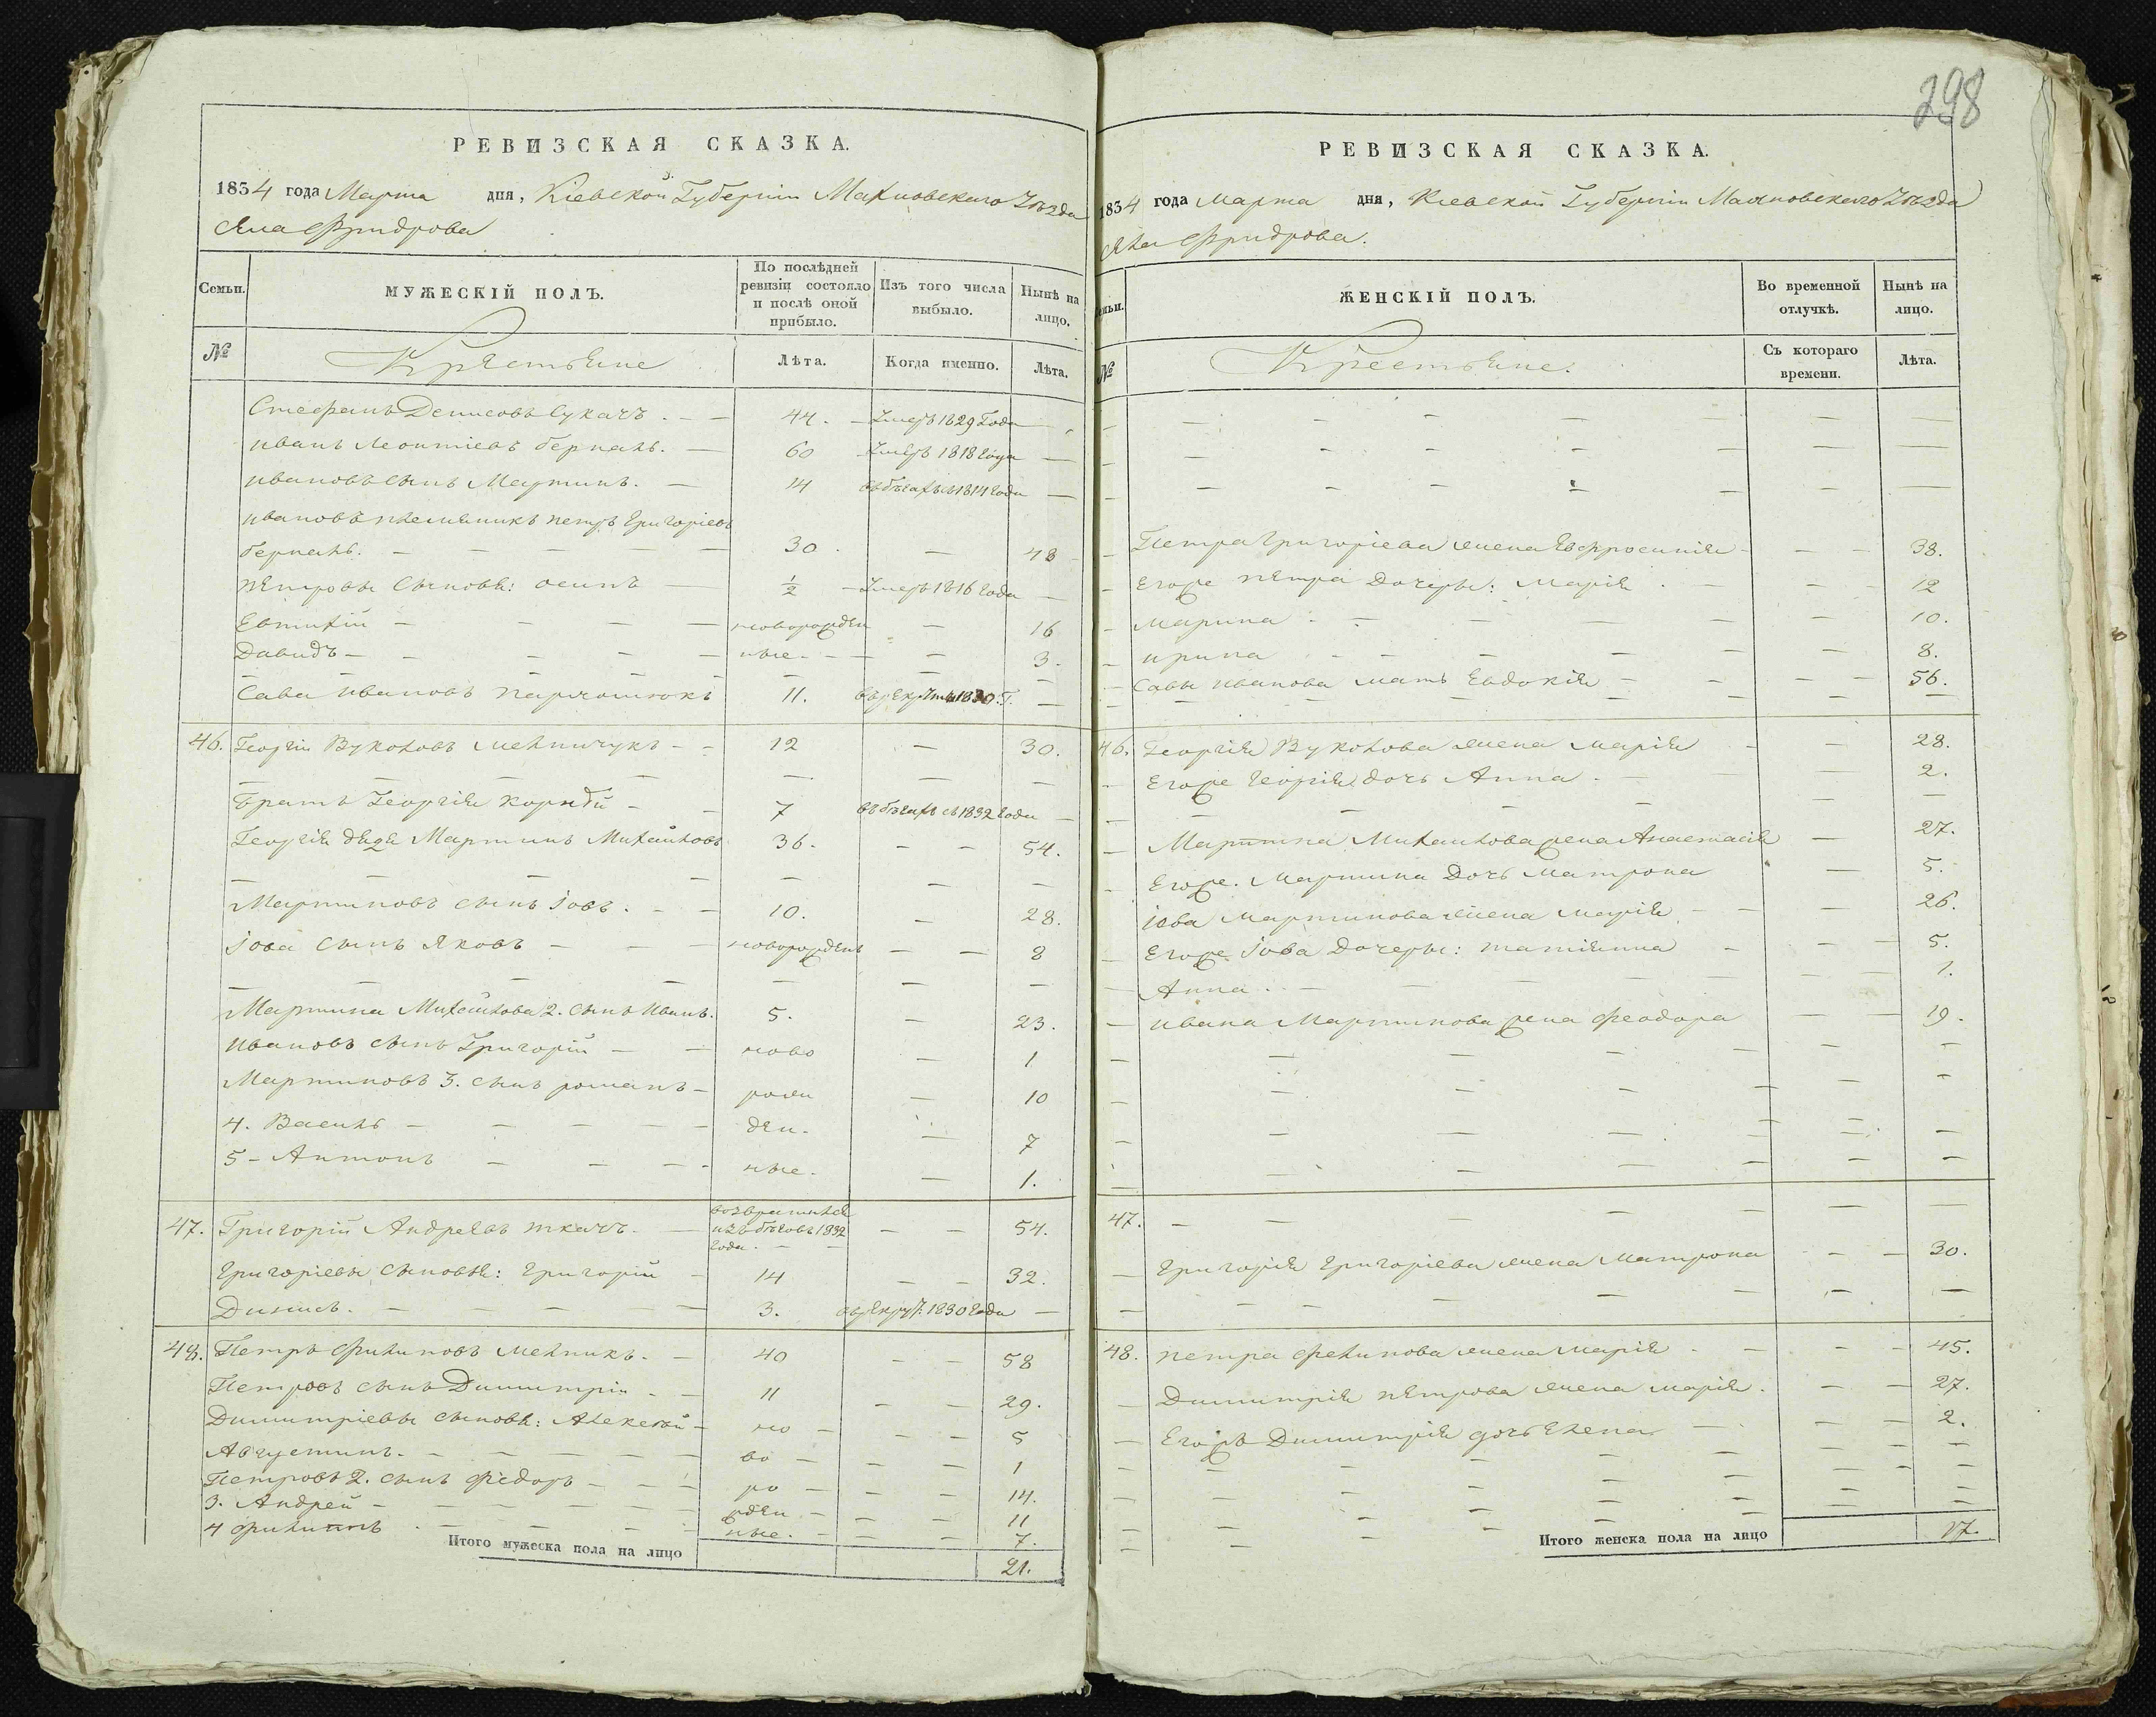 298
РЕВИЗСКАЯ СКАЗКА.
1834 года Марта дня, Кіевской Губерніи Махновскаго Уѣзда
РЕВИЗСКАЯ СКАЗКА.
1834 года Марта дня, Кіевской Губерніи Махновскаго Уѣзда
Семьи. МУЖЕСКІЙ ПОЛЪ. По послѣдней ревизіи состояло и послѣ оной прибыло. Изъ того числа выбыло. Нынѣ на лицо.
№ Крестьяне Лѣта. Когда именно. Лѣта.
Стефанъ Денисовъ Сукачъ. 44. Умеръ 1829 Года
Иванъ Леонтіевъ 60 Умеръ 1818 Года
Ивановъ сынъ Мартинъ. 14 въ бѣгахъ съ 1814 Года
Ивановъ племянникъ Петръ Григоріевъ
30. 48
Петровы Сыновья: Осипъ ½ Умеръ 1816 Года
Евтихій новорожден 16
Давидъ ные 3.
Сава Ивановъ 11. въ рекруты 1830. Г.
46. Георгій Вуколовъ Мельничукъ 12 30.
Братъ Георгія Корнѣй 7 въ бѣгахъ съ 1832 Года
Георгія дядя Мартинъ Михайловъ 36. 54.
Мартиновъ сынъ Іовъ. 10. 28.
Іова сынъ Яковъ новорожденъ 8
Мартина Михайлова 2. сынъ Иванъ. 5. 23.
Ивановъ сынъ Григорій ново 1
Мартиновъ 3. сынъ романъ рож 10
4. Василь ден. 7
5 Антонъ ные. 1.
47. Григорій Андреевъ ткачъ. возвратился
изъ бѣговъ 1832 54.
Года.
Григоріевы Сыновья: Григорій 14 32.
Динисъ. 3. въ рекрут. 1830 Года
48. Петръ Филиповъ Мельникъ. 40 58
Петровъ сынъ Димитрій 11 29.
Димитріевы сыновья: Алексѣй но 5
Августинъ. во 1
Петровъ 2. сынъ Фёдоръ ро 14.
3. Андрей жден 11
4 Филиппъ ные. 7.
Итого мужеска пола на лицо 21.
Семьи. ЖЕНСКІЙ ПОЛЪ. Во временной отлучкѣ. Нынѣ на лицо.
№ Крестьяне. Съ котораго времени. Лѣта.
Петра Григоріева жена Евфросинія 38.
Егоже Петра Дочеры: Марія 12
Марина 10.
Ирина 8.
Савы Иванова мать Евдокія 56.
46. Георгія Вуколова жена Марія 28.
Егоже Георгія дочь Анна. 2.
Мартина Михайлова жена Анастасія 27.
Егоже Мартина Дочь Матрона 5.
Іова Мартинова жена Марія 26.
Егоже Іова Дочеры: Татіянна 5.
Анна. 1.
Ивана Мартинова жена Феодора 19.
47.
Григорія Григоріева жена Матрона 30.
48. Петра Филипова жена Марія 45.
Димитрія Петрова жена Марія. 27.
Егожъ Димитрія дочь Елена 2.
Итого женска пола на лицо 17.